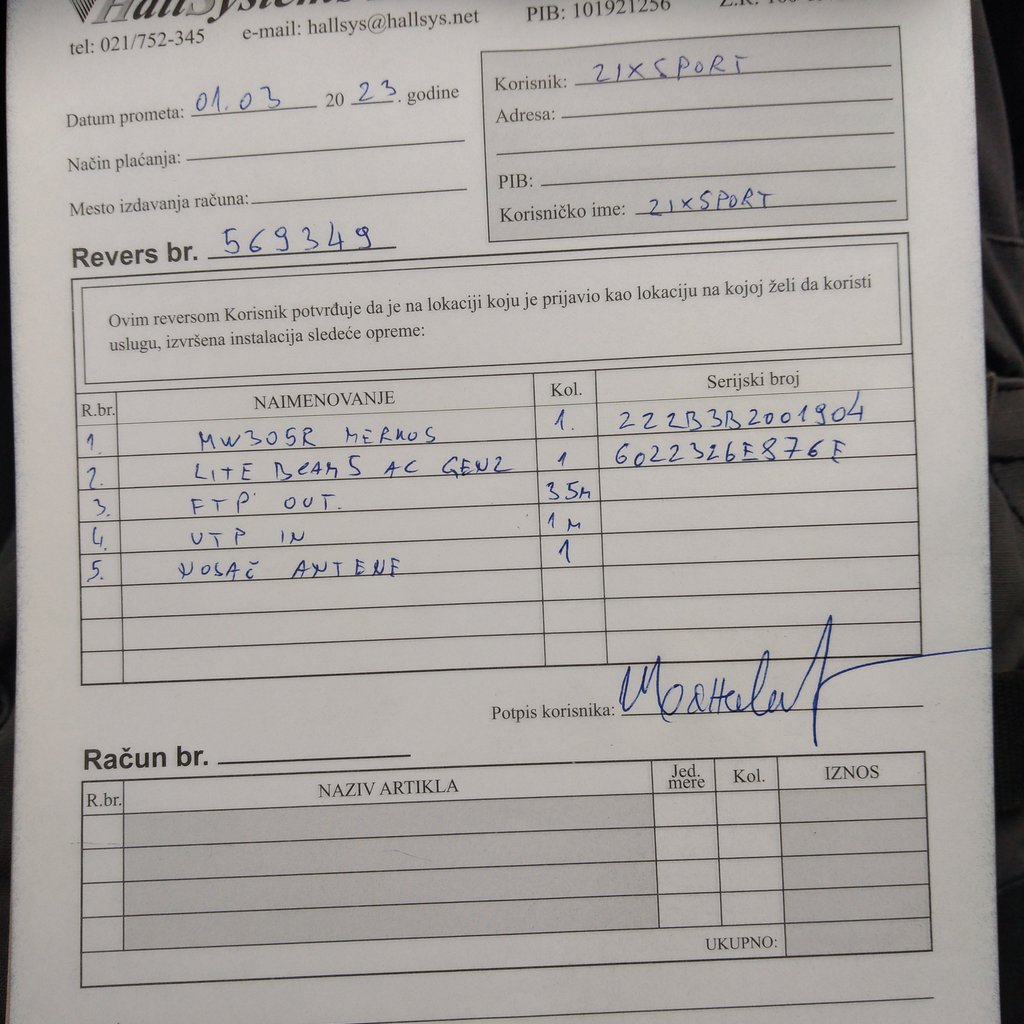 HallSystems
tel: 021/752-345 e-mail: hallsys@hallsys.net PIB: 101921256
Datum prometa: 01.03 20 23. godine
Način plaćanja:
Mesto izdavanja računa:
Korisnik: 21XSPORT
Adresa:
PIB:
Korisničko ime: 21XSPORT
Revers br. 569349
Ovim reversom Korisnik potvrđuje da je na lokaciji koju je prijavio kao lokaciju na kojoj želi da koristi
uslugu, izvršena instalacija sledeće opreme:
R.br. NAIMENOVANJE Kol. Serijski broj
1. MW305R MERKUS 1. 222B3B2001904
2. LITE BEAM5 AC GEN2 1 6022326E876E
3. FTP OUT. 35m
4. UTP IN 1m
5. NOSAČ ANTENE 1
Potpis korisnika:
Račun br.
R.br. NAZIV ARTIKLA Jed. mere Kol. IZNOS
UKUPNO: